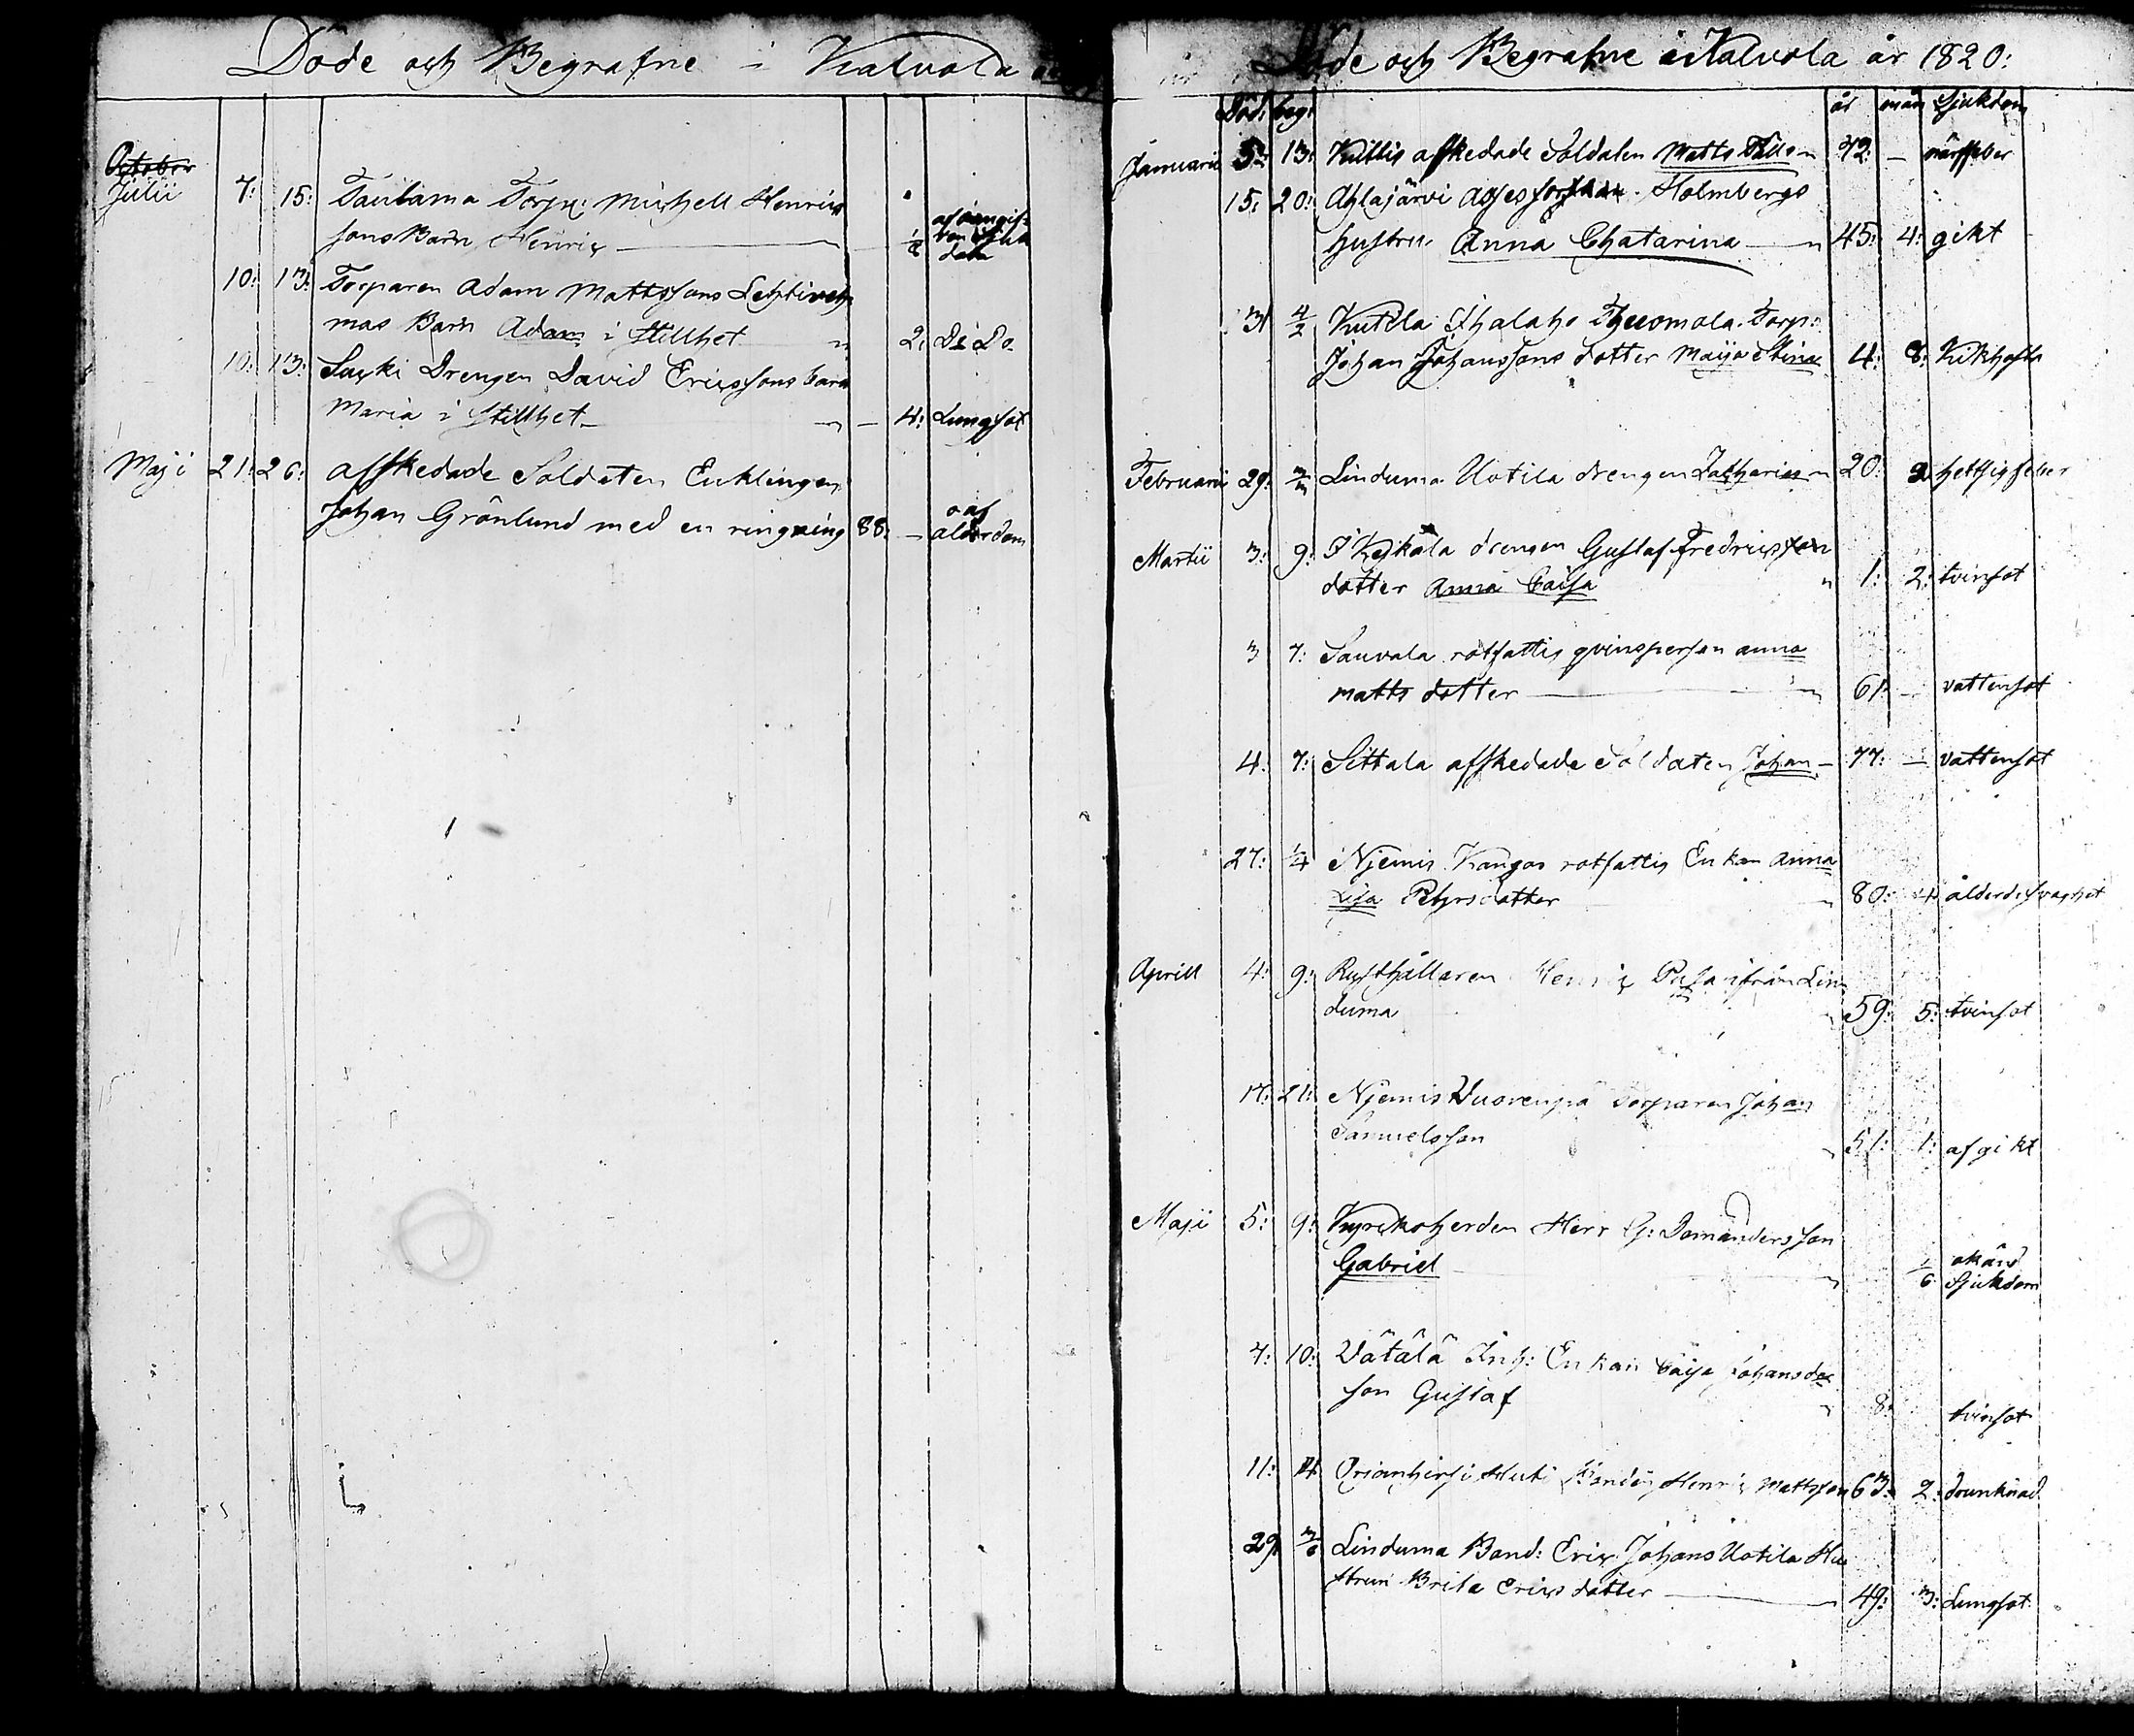 Döde och Begrafne i Kalvola
October
Julii 7: 15: Taulama Torp: Michell Henrics
sons Barn Henric 1/2 af oangif-
ven Sjuk
dom
10: 13: Torparen Adam Mattssons
mas Barn Adam i stillhet 2: Do Do
10: 13: Sacki Drengen David Ericssons barn
Maria i stillhet – 4: Lungsot
Maji 21: 26: afskedade Soldaten
Johan Grönlund med en ringning 88: – af
ålderdom
Döde och Begrafne i Kalvola år 1820:
Död: beg: år mån Sjukdom
Januarii 5: 13: Kuttis afskedade Soldaten Matts 72: –
15: 20: Ahlajärvi Holmbergs
hustru Anna Chatarina 45: 4: gikt
31 4/2 Kutila Torp:
Johan Johanssons dotter Maija Stina 4: 8: Kikhosta
Februarii 29: Linduma Uotila drengen Zacharias 20: 2 hettsig feber
Martii 3: 9: drengen Gustaf Fredricsson
dotter Anna Caisa 1: 2: tvinsot
3 7: Sauvala rotfattig qvinsperson anna
matts dotter 61: – vattensot
4: 7: Sittala afskedade Soldaten Johan 77: – vattensot
27: 1/4 Niemis Kangas rotfattig Enkan Anna
Lisa Petersdotter 80: 4 ålderdsvaghet
Aprill 4: 9: Rusthållaren Henric från Lin
duma 59: 5: tvinsot
17: 21: Niemis Vuorenpä Torparen Johan
Samuelsson 51: 1: af gikt
Maji 5: 9: Kyrckoherden Herr G: Domanders son
Gabriel 1/6 okänd
Sjukdom
7: 10: Vätälä Inh: Enkan Caisa Johansdr
son Gustaf 8: tvinsot
11: 14 Orjanhirsi Huti Henric Mattsson 63: 2: drunknad
29: 3/6 Linduma Bond: Eric Johans Uotila Hu
strun Brita Erics dotter 49: 3: Lungsot